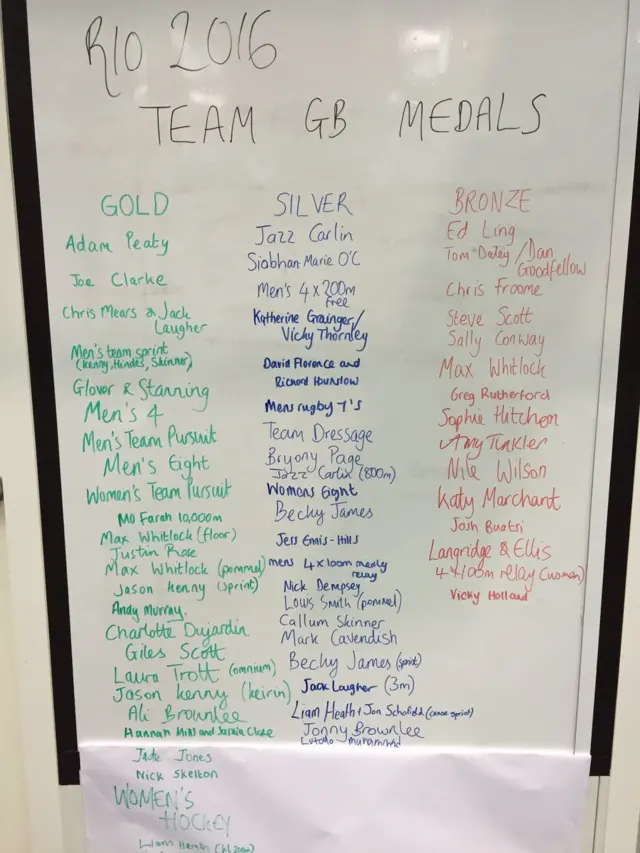 RIO 2016
TEAM GB MEDALS
GOLD
Adam Peaty
Joe Clarke
Chris Mears & Jack
Laugher
Men's team sprint
(Kenny, Hindes, Skinner)
Glover & Stanning
Men's 4
Men's Team Pursuit
Men's Eight
Women's Team Pursuit
Mo Farah 10,000m
Max Whitlock (floor)
Justin Rose
Max Whitlock (pommel)
Jason Kenny (sprint)
Andy Murray.
Charlotte Dujardin
Giles Scott
Laura Trott (omnium)
Jason Kenny (keirin)
Ali Brownlee
Hannah Mill and Saskia Clake
Jade Jones
Nick Skelton
WOMEN'S
HOCKEY
Liam Heath
SILVER
Jazz Carlin
Siobhan-Marie O'C
Men's 4x200m
free
Katherine Grainger/
Vicky Thornley
David Florence and
Richard Hounslow
Mens rugby 7's
Team Dressage
Bryony Page
Jazz Carlin (800m)
Womens Eight
Becky James
Jess Ennis-Hills
mens 4x100m medly
relay
Nick Dempsey
Louis Smith (pommel)
Callum Skinner
Mark Cavendish
Becky James (sprint)
Jack Laugher (3m)
Liam Heath + Jon Schofield (canoe sprint)
Jonny Brownlee
Lutalo Muhammad
BRONZE
Ed Ling
Tom Daley / Dan
Goodfellow
Chris Froome
Steve Scott
Sally Conway
Max Whitlock
Greg Rutherford
Sophie Hitchon
Amy Tinkler
Nile Wilson
Katy Marchant
Josh Buatsi
Langridge & Ellis
4x100m relay (women)
Vicky Holland